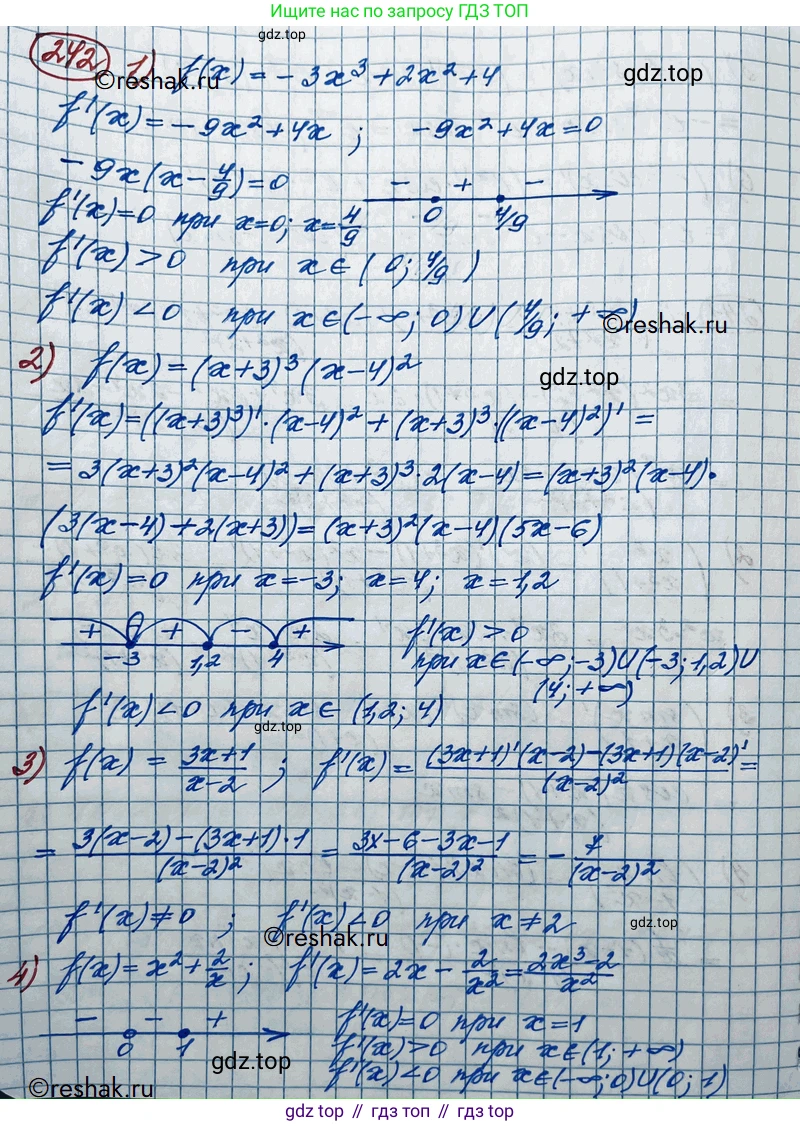 Ищите нас по запросу ГДЗ ТОП
242 1) f(x) = -3x³ + 2x² + 4
gdz.top
gdz.top
f'(x) = -9x² + 4x ; -9x² + 4x = 0
-9x(x - 4/9) = 0
- + -
0 4/9
f'(x) = 0 при x=0; x=4/9
f'(x) > 0 при x∈(0; 4/9)
f'(x) < 0 при x∈(-∞; 0)∪(4/9; +∞)
©reshak.ru
2) f(x) = (x+3)³(x-4)²
gdz.top
f'(x) = ((x+3)³)'·(x-4)² + (x+3)³·((x-4)²)' =
= 3(x+3)²(x-4)² + (x+3)³·2(x-4) = (x+3)²(x-4)·
(3(x-4)+2(x+3)) = (x+3)²(x-4)(5x-6)
f'(x) = 0 при x=-3; x=4; x=1,2
+ + - +
-3 1,2 4
f'(x) > 0
при x∈(-∞;-3)∪(-3;1,2)∪
(4;+∞)
f'(x) < 0 при x∈(1,2; 4)
gdz.top
3) f(x) = (3x+1)/(x-2) ; f'(x) = ((3x+1)'(x-2)-(3x+1)(x-2)')/(x-2)² =
= (3(x-2)-(3x+1)·1)/(x-2)² = (3x-6-3x-1)/(x-2)² = -7/(x-2)²
f'(x) ≠ 0 ; f'(x) < 0 при x ≠ 2
gdz.top
©reshak.ru
4) f(x) = x² + 2/x ; f'(x) = 2x - 2/x² = (2x³-2)/x²
- - +
0 1
f'(x) = 0 при x=1
f'(x) > 0 при x∈(1; +∞)
f'(x) < 0 при x∈(-∞;0)∪(0; 1)
gdz.top
©reshak.ru
gdz.top // гдз.топ // gdz.top // гдз.топ